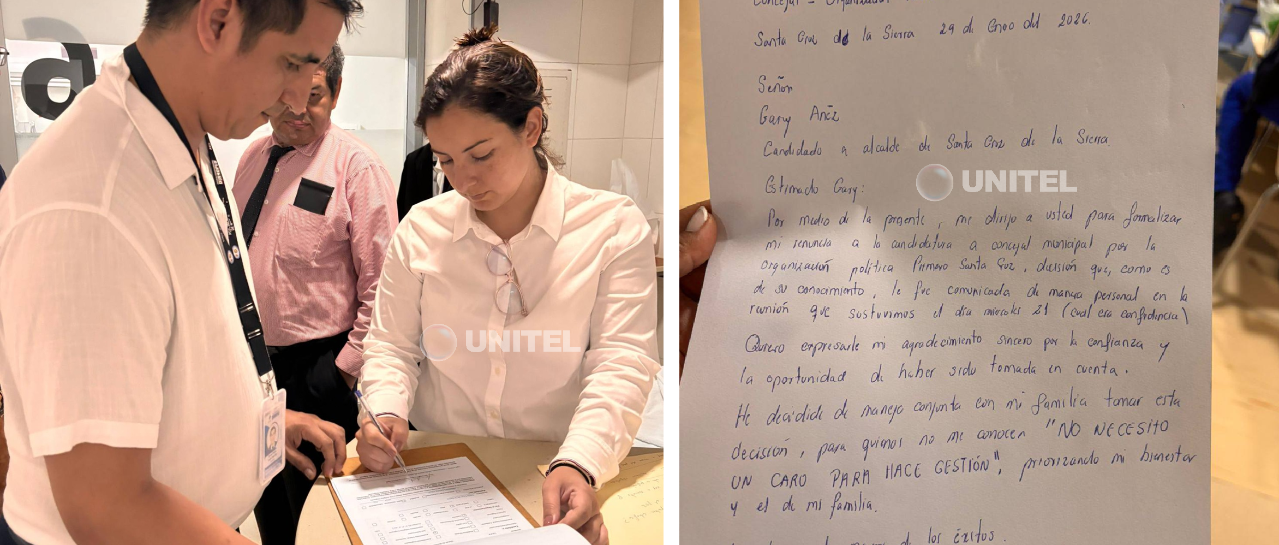 UNITEL
Concejal - Organizador
Santa Cruz de la Sierra 29 de Enero del 2026.
Señor
Gary Añez
Candidado a alcalde de Santa Cruz de la Sierra
UNITEL
Estimado Gary:
Por medio de la presente, me dirijo a usted para formalizar
mi renuncia a la candidatura a concejal municipal por la
organización política Primero Santa Cruz, decisión que, como es
de su conocimiento, le fue comunicada de manera personal en la
reunión que sostuvimos el día miercoles 21 (cual era confidencial)
Quiero expresarle mi agradecimiento sincero por la confianza y
la oportunidad de haber sido tomada en cuenta.
He decidido de manera conjunta con mi familia tomar esta
decisión, para quienes no me conocen "NO NECESITO
UN CARO PARA HACE GESTIÓN", priorizando mi bienestar
y el de mi familia.
de los éxitos.